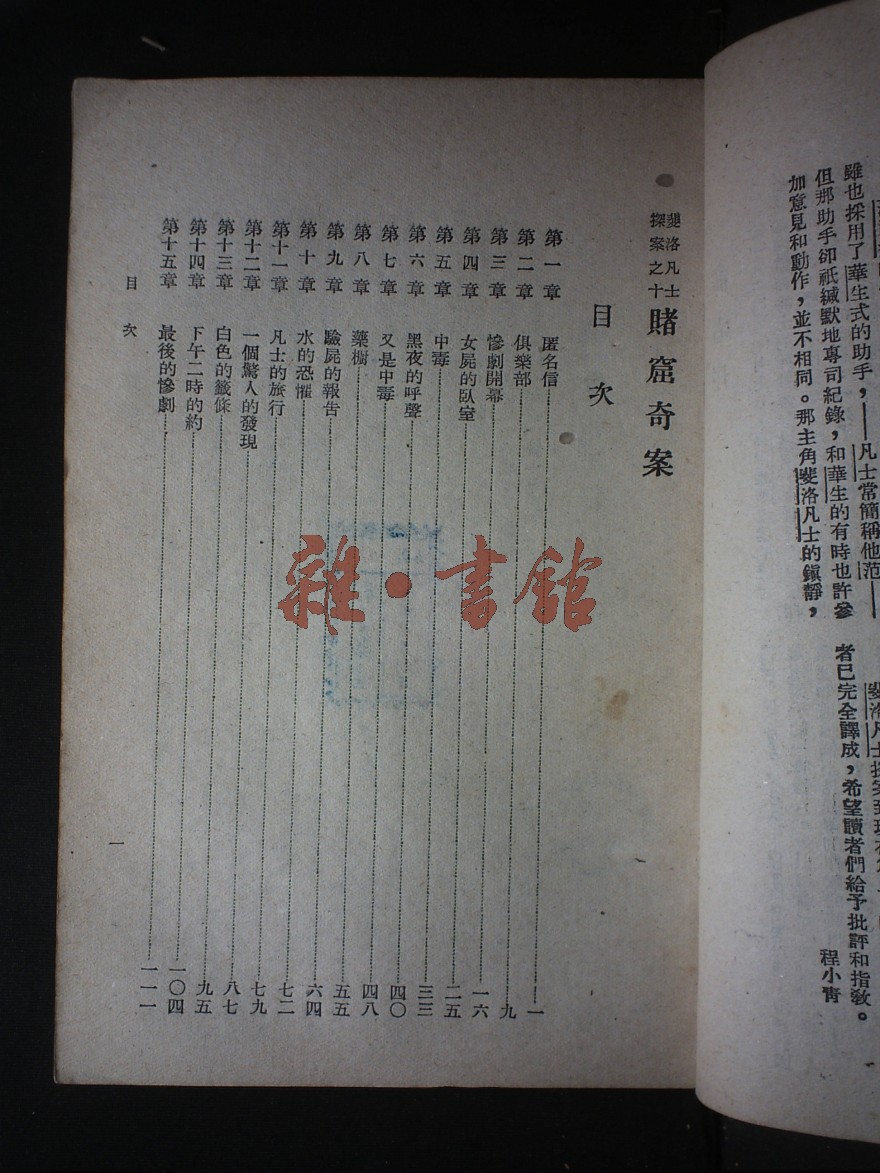 雖也採用了華生式的助手，——凡士常簡稱他范——
但那助手卻祇緘默地專司紀錄，和華生的有時也許參
加意見和動作，並不相同。那主角斐洛凡士的鎮靜，
斐洛凡士探案到現在
者已完全譯成，希望讀者們給予批評和指教。
程小青
斐洛凡士
探案之十
賭窟奇案
目次
第一章 匿名信 一
第二章 俱樂部 九
第三章 慘劇開幕 一六
第四章 女屍的臥室 二五
第五章 中毒 三三
第六章 黑夜的呼聲 四〇
第七章 又是中毒 四八
第八章 藥櫥 五五
第九章 驗屍的報告 六四
第十章 水的恐懼 七二
第十一章 凡士的旅行 七九
第十二章 一個驚人的發現 八七
第十三章 白色的籤條 九五
第十四章 下午二時的約 一〇四
第十五章 最後的慘劇 一一一
目次
一
雜·書館